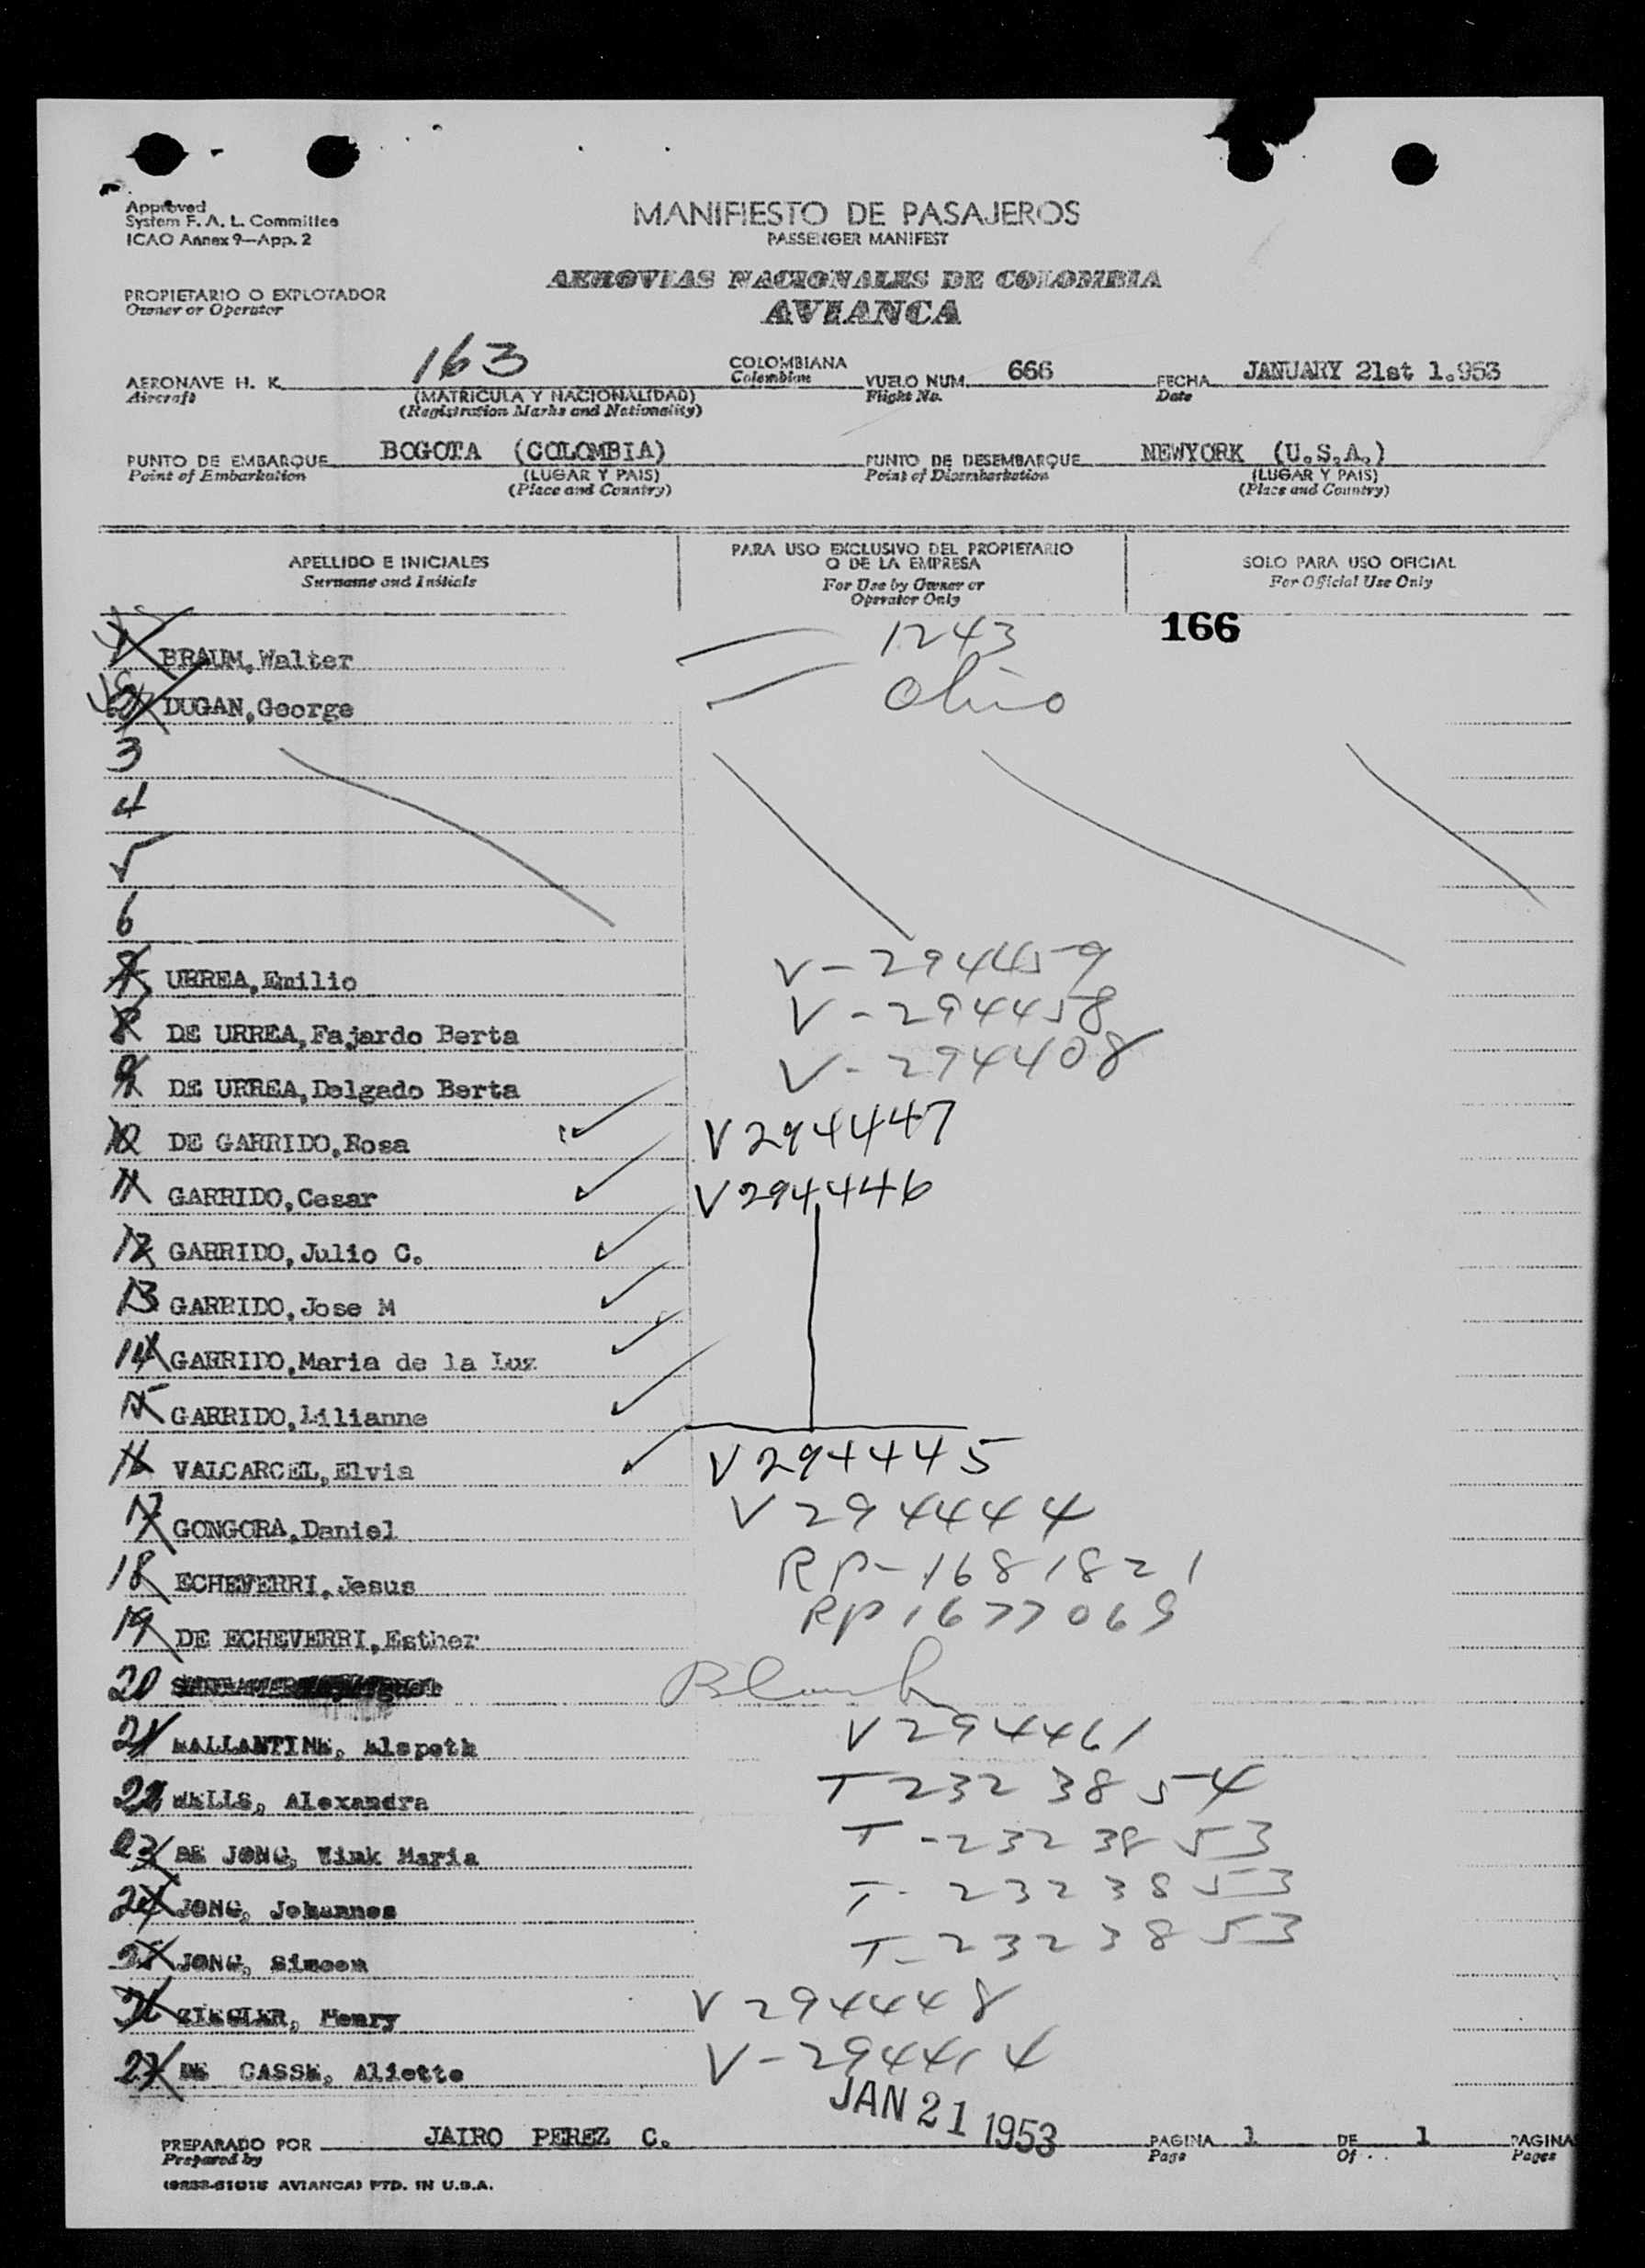 Approved
System F. A. L. Committee
ICAO Annex 9—App. 2
MANIFIESTO DE PASAJEROS
PASSENGER MANIFEST
PROPIETARIO O EXPLOTADOR
Owner or Operator
AEROVIAS NACIONALES DE COLOMBIA
AVIANCA
AERONAVE H. K. 163 COLOMBIANA VUELO NUM. 666 FECHA JANUARY 21st 1.953
Aircraft (MATRICULA Y NACIONALIDAD) Colombian Flight No. Date
(Registration Marks and Nationality)
PUNTO DE EMBARQUE BOGOTA (COLOMBIA) PUNTO DE DESEMBARQUE NEWYORK (U.S.A.)
Point of Embarkation (LUGAR Y PAIS) Point of Disembarkation (LUGAR Y PAIS)
(Place and Country) (Place and Country)
APELLIDO E INICIALES PARA USO EXCLUSIVO DEL PROPIETARIO O DE LA EMPRESA SOLO PARA USO OFICIAL
Surname and Initials For Use by Owner or Operator Only For Official Use Only
166
BRAUM, Walter 1243
DUGAN, George Ohio
3
4
5
6
7 URREA, Emilio V-294459
8 DE URREA, Fajardo Berta V-294458
9 DE URREA, Delgado Berta V-294408
10 DE GARRIDO, Rosa V294447
11 GARRIDO, Cesar V294446
12 GARRIDO, Julio C.
13 GARRIDO, Jose M
14 GARRIDO, Maria de la Luz
15 GARRIDO, Lilianne
16 VALCARCEL, Elvia V294445
17 GONGORA, Daniel V294444
18 ECHEVERRI, Jesus RP-1681821
19 DE ECHEVERRI, Esther RP1677069
20 Blank
21 BALLANTINE, Elspeth V294461
22 WELLS, Alexandra T2323854
23 DE JONG, Wink Maria T-2323853
24 JONG, Johannes T-2323853
25 JONG, Simeon T-2323853
26 ZIEGLER, Henry V294448
27 DE CASSE, Aliette V-294414
JAN 21 1953
PREPARADO POR JAIRO PEREZ C. PAGINA 1 DE 1 PAGINA
Prepared by Page Of Pages
AVIANCA) PTD. IN U.S.A.